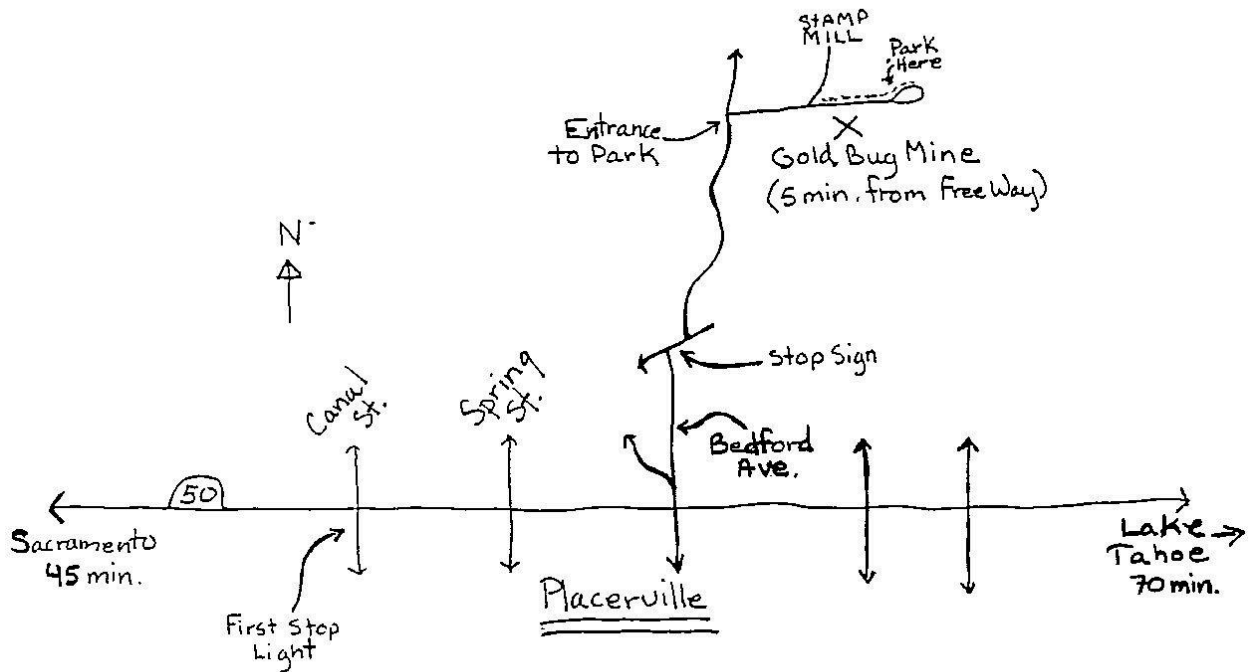 STAMP
MILL
Park
Here
Entrance
to Park
X
Gold Bug Mine
(5 min. from FreeWay)
N
Stop Sign
Canal
St.
Spring
St.
Bedford
Ave.
50
Sacramento
45 min.
Lake
Tahoe
70 min.
First Stop
Light
Placerville